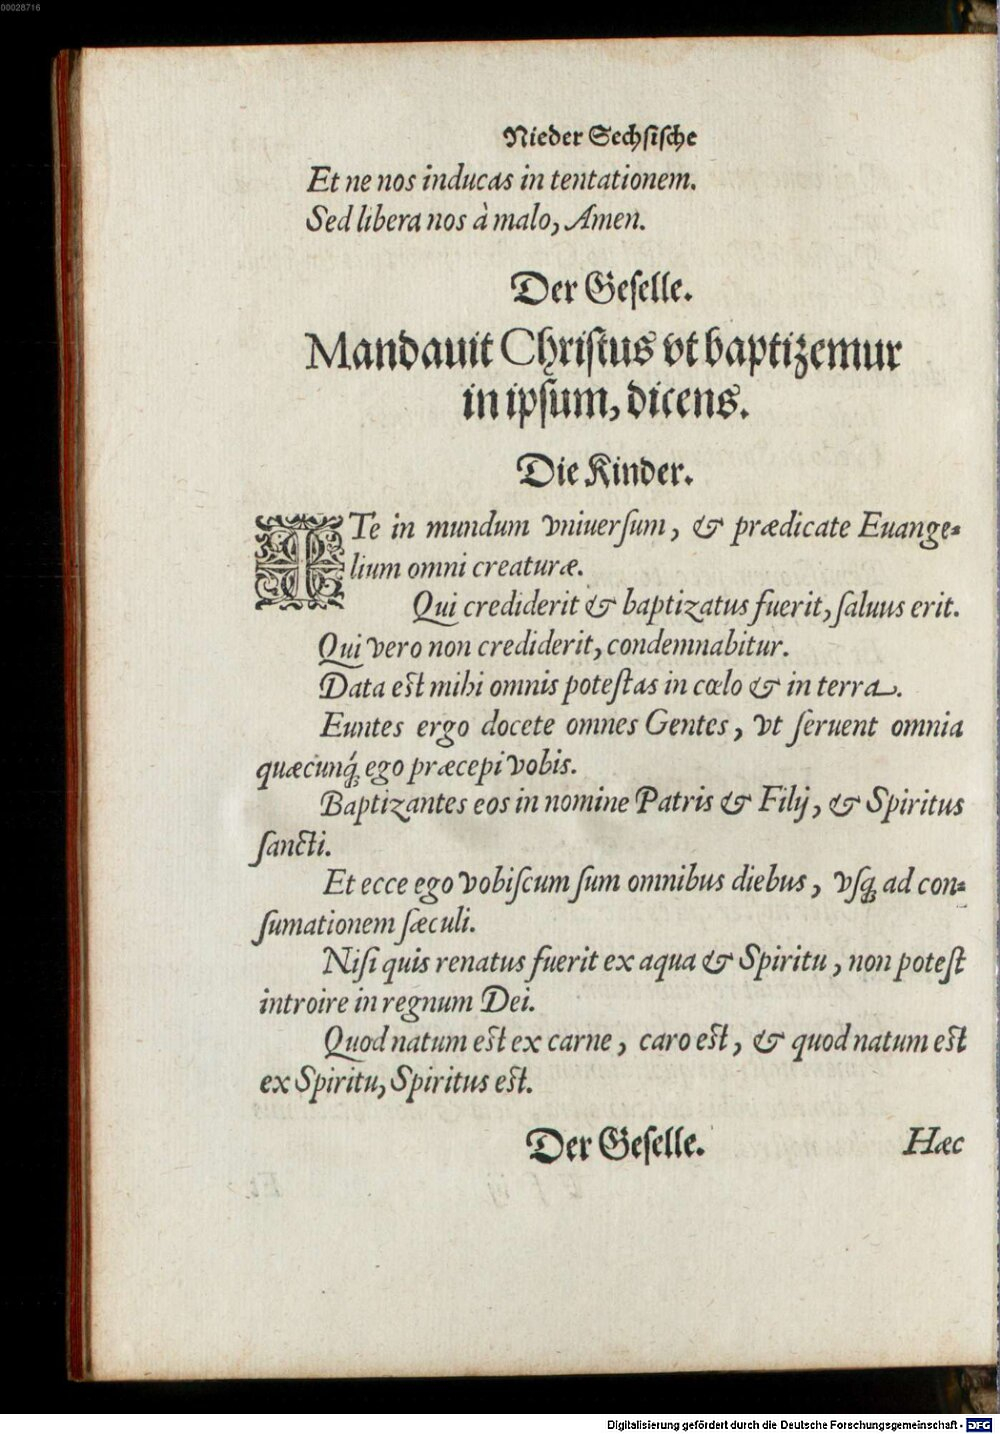 00028716
Nieder Sechsische
Et ne nos inducas in tentationem.
Sed libera nos à malo, Amen.
Der Geselle.
Mandauit Christus vt baptizemur
in ipsum, dicens.
Die Kinder.
ITe in mundum vniuersum, & prædicate Euange=
lium omni creaturæ.
Qui crediderit & baptizatus fuerit, saluus erit.
Qui vero non crediderit, condemnabitur.
Data est mihi omnis potestas in cœlo & in terra.
Euntes ergo docete omnes Gentes, vt seruent omnia
quæcunq́ꝫ ego præcepi vobis.
Baptizantes eos in nomine Patris & Filij, & Spiritus
sancti.
Et ecce ego vobiscum sum omnibus diebus, vsqꝫ ad con=
sumationem sæculi.
Nisi quis renatus fuerit ex aqua & Spiritu, non potest
introire in regnum Dei.
Quod natum est ex carne, caro est, & quod natum est
ex Spiritu, Spiritus est.
Der Geselle. Hæc
Digitalisierung gefördert durch die Deutsche Forschungsgemeinschaft - DFG